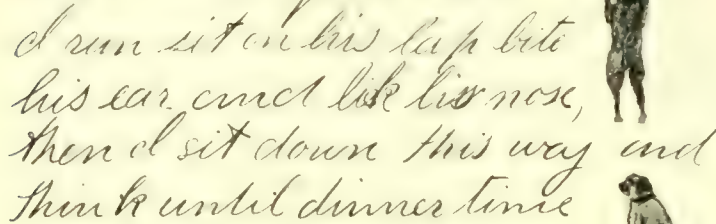 I run sit on his lap bite
his ear and lik his nose,
then I sit down this way and
think until dinner time